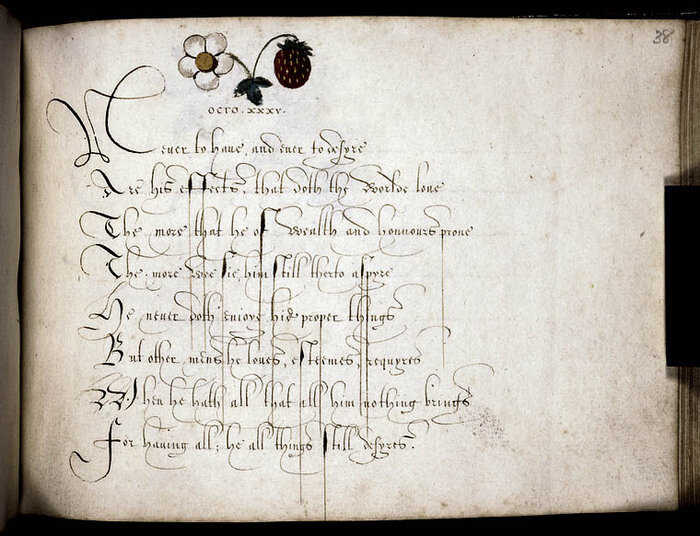 38
OCTO. XXXV.
Never to have, and ever to desyre
Are his effects, that doth the worlde love
The more that he of wealth and honnours prove
The more wee sie him still therto aspyre
He never doth enioye his proper things
But other mens he loves, esteemes, requyres
When he hath all that all him nothing brings
For having all; he all things still desyres.